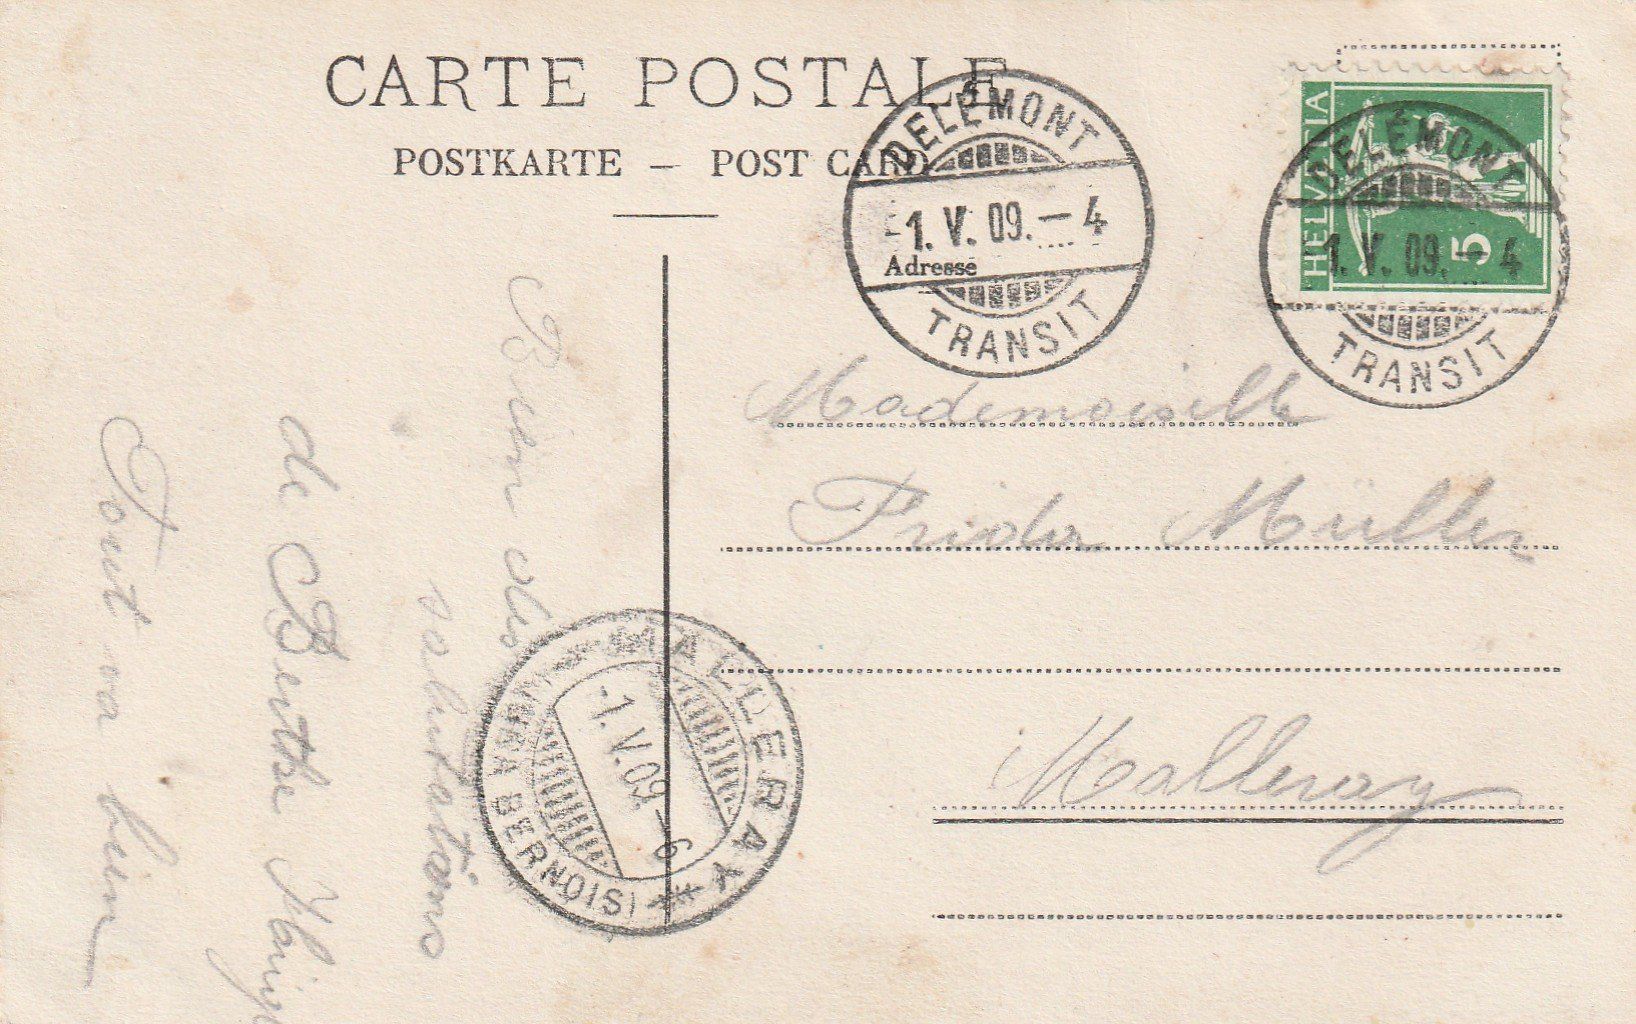 CARTE POSTALE
POSTKARTE – POST CARD
DELÉMONT
-1. V. 09. – 4
TRANSIT
Adresse
HELVETIA
5
DELÉMONT
-1. V. 09. – 4
TRANSIT
Mademoiselle
Frida Müller
Malleray
MALLERAY
-1. V. 09. – 6
(JURA BERNOIS)
Bien des
salutations
de Berthe
Tout va bien